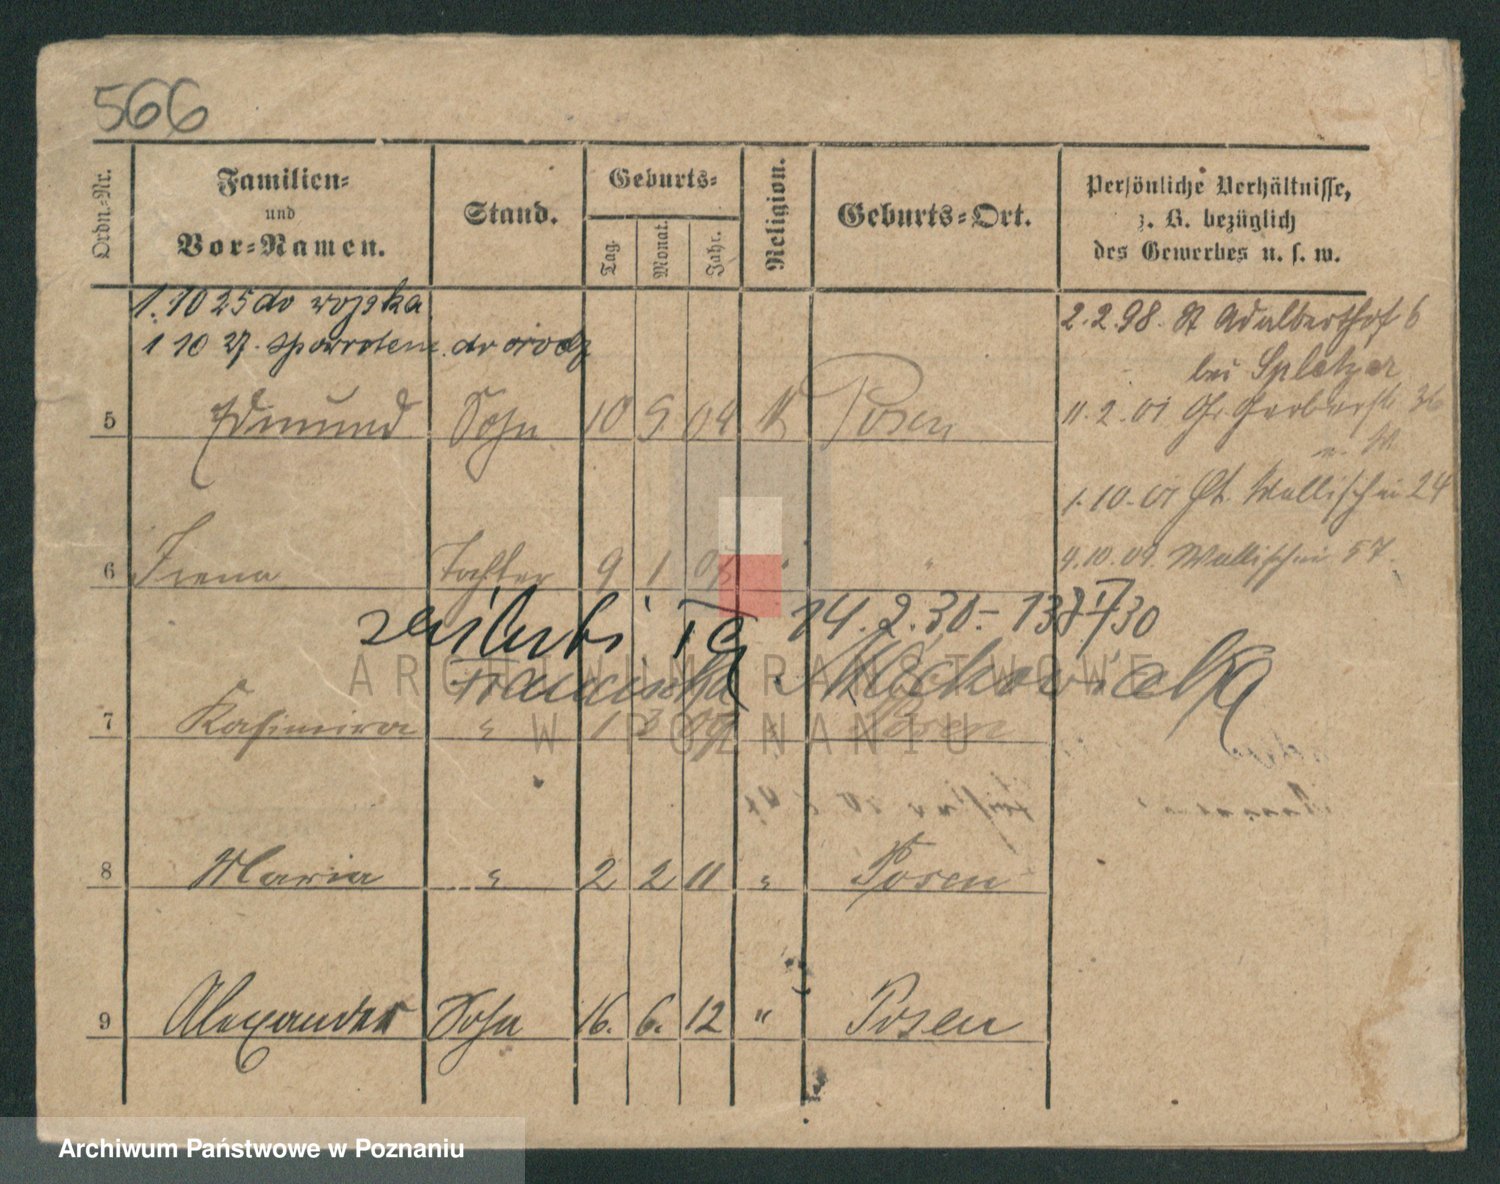 566
Ordn.-Nr.
Familien-
und
Vor-Namen.
Stand.
Geburts-
Tag.
Monat.
Jahr.
Religion.
Geburts-Ort.
Persönliche Verhältnisse,
z. B. bezüglich
des Gewerbes u. s. w.
1.10 25 do wojska
1 10 27. spowrotem do
2.2.98. St Adalberthof 6
bei Spletzer
5 Edmund Sohn 10 9 04 K Posen
11.2.01 Gr Gerberstr 36
1.10.01 Wallischei 24
6 Irena Tochter 9 1 "
4.10.09. Wallischei 57.
14.2.30.-
Franciszka
7 Kasimira " 1 3 09 " Posen
8 Maria " 2 2 11 " Posen
9 Alexander Sohn 16. 6. 12 " Posen
ARCHIWUM PAŃSTWOWE
W POZNANIU
Archiwum Państwowe w Poznaniu